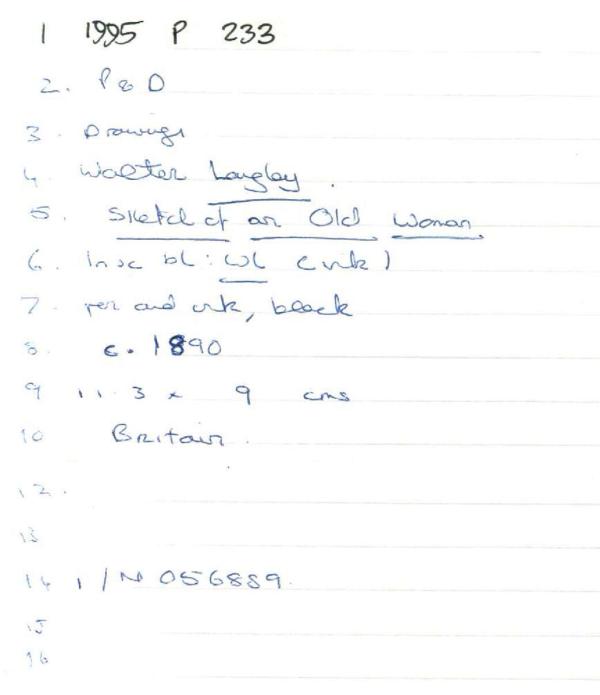 1 1995 P 233
2. P & D
3. Drawings
4. Walter Langley.
5. Sketch of an Old Woman
6. Insc bl: WL (ink)
7. pen and ink, black
8. c. 1890
9 11.3 x 9 cms
10 Britain.
12.
13
14 1/N 056889.
15
16